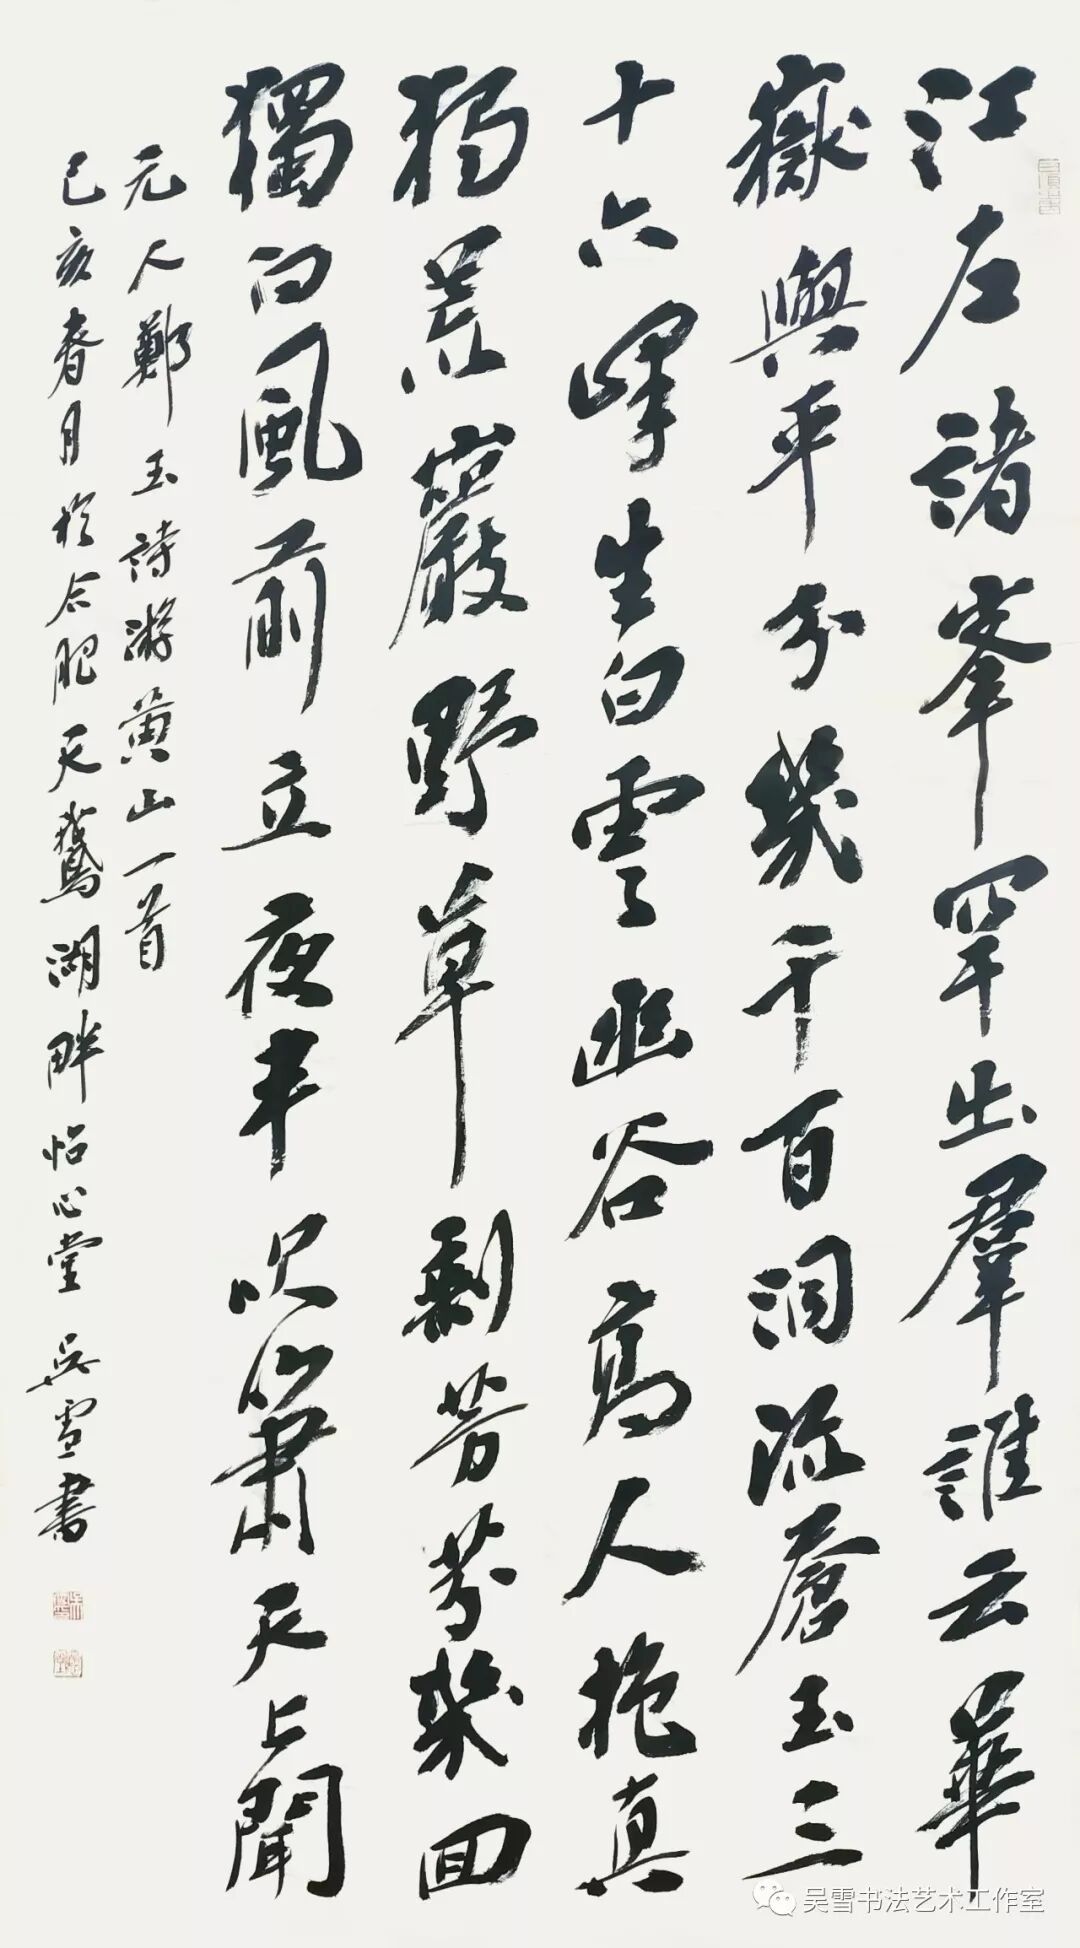 江左諸峯罕出羣誰云華
嶽與平分幾千百洞流蒼玉三
十六峰生白雲幽谷高人抱真
獨荒巖野草剩芳芬幾回
獨向風前立夜半吹簫天上聞
元人鄭玉詩游黄山一首
己亥春月於合肥天鵞湖畔怡心堂 吴雪書
吴雪书法艺术工作室